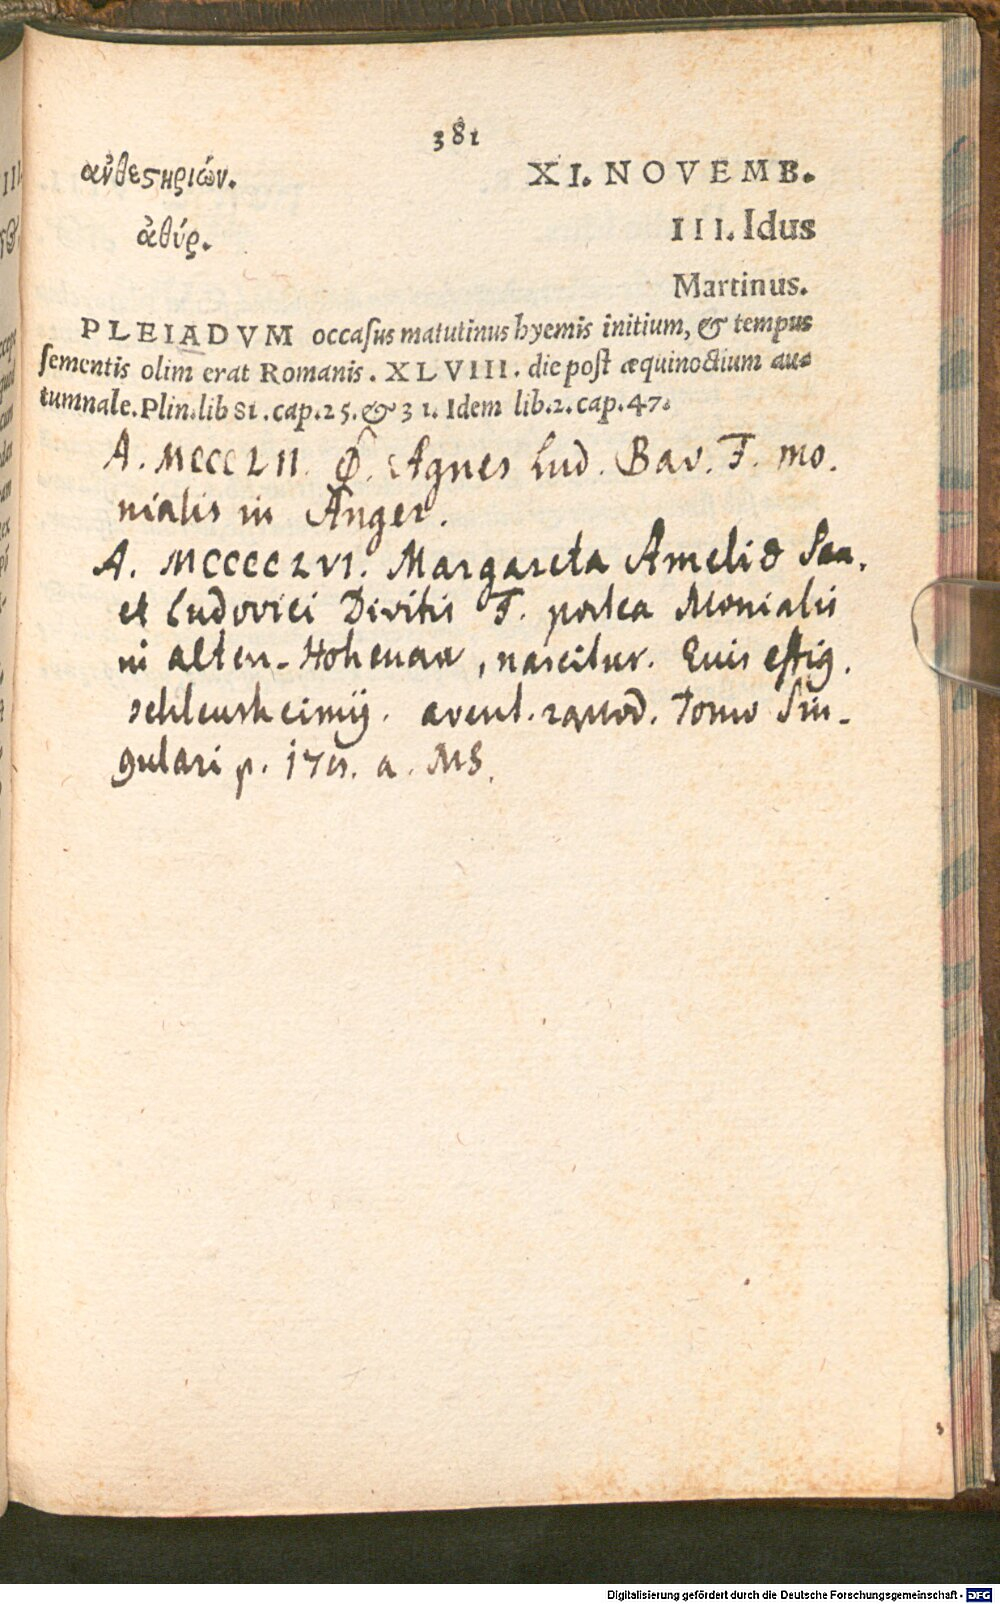 381
ἀνθεστηριών.
XI. NOVEMB.
ἀθύρ.
III. Idus
Martinus.
PLEIADVM occaſus matutinus hyemis initium, & tempus
ſementis olim erat Romanis. XLVIII. die poſt æquinoctium au-
tumnale. Plin. lib 81. cap. 25. & 31. Idem lib. 2. cap. 47.
A. MCCCLII. Agnes Lud. Bav. F. mo.
nialis in Anger.
A. MCCCCLVI. Margareta Ameliæ Sax.
et Ludovici Divitis F. postea Monialis
in alten-Hohenaw, nascitur. Eius effig.
schleusheimij. avent. Tomo Sin-
gulari p. a. MS.
Digitalisierung gefördert durch die Deutsche Forschungsgemeinschaft - DFG